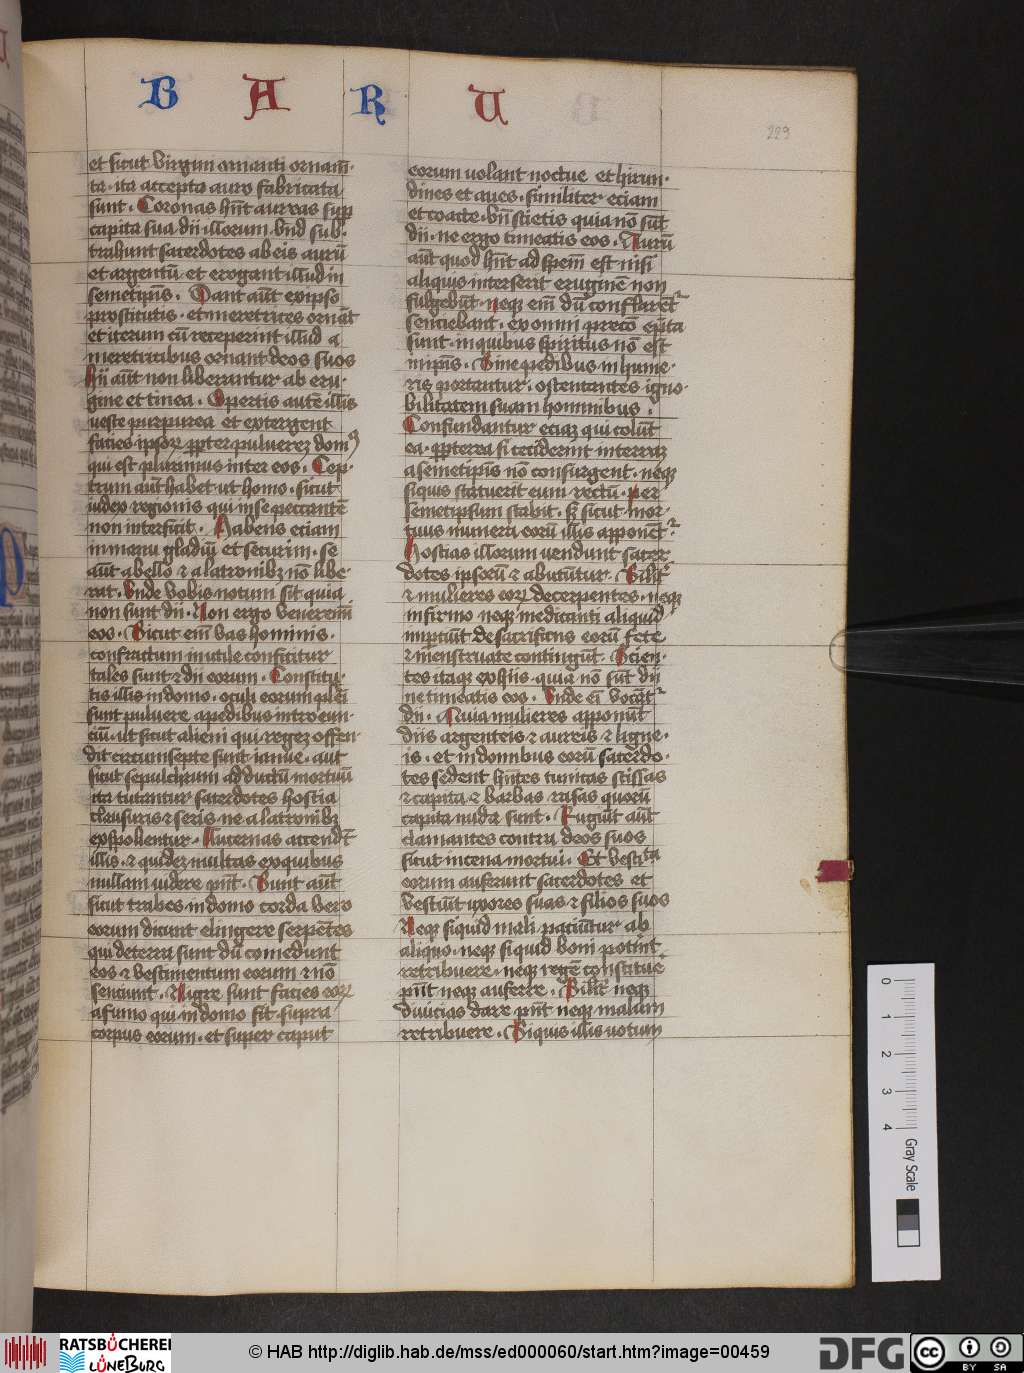 B A R U
229
et sicut virgini amanti ornam̄
ta · ita accepto auro fabricata
sunt · Coronas hn̄t aureas sup̄
capita sua dii illorum · vnd sub
trahunt sacerdotes ab eis aurū
et argentū · et erogant illud in
semetip̄os · Dant aūt ex ip̄so
prostitutis · et meretrices ornāt
et iterum cū receperint illud a
meretricibus ornant deos suos
Hii aūt non liberantur ab eru
gine et tinea · Opertis autē illis
veste purpurea et extergent
facies ip̄oꝝ ꝓpter puluereꝫ domꝰ
qui est plurimus inter eos · Cep
trum aūt habet ut homo · sicut
iudex regionis qui in se peccantē
non interficit · Habens eciam
in manu gladiū et securim · se
aūt a bello ⁊ a latronibꝫ nō libe
rat · Vnde vobis notum sit quia
non sunt dii · Non ergo veneremī
eos · Sicut em̄ vas hominis
confractum inutile efficitur
tales sunt ⁊ dii eorum · Constitu
tis illis in domo · oculi eorum pleī
sunt puluere a pedibus introeun
ciū · ut sicut alieni qui regeꝫ offen
dit circumsepte sunt ianue · aut
sicut sepulchrum adductū mortuū
ita tutantur sacerdotes hostia
clausuris ⁊ seris ne a latronibꝫ
expolientur · Lucernas accend̄t
illis · ⁊ quideꝫ multas ex quibus
nullam videre pn̄t · Sunt aūt
sicut trabes in domo corda vero
eorum dicunt elingere serpentes
qui de terra sunt dū comedunt
eos ⁊ vestimentum eorum ⁊ nō
senciunt · Nigre sunt facies eoꝝ
a fumo qui in domo fit · supra
corpus eorum · et super caput
eorum volant noctue et hirun
dines et aues · similiter eciam
et cacte · vn̄ scietis quia nō sūt
dii · ne ergo timeatis eos · Aurū
aūt quod hn̄t ad speīm est nisi
aliquis interserit eruginē non
fulgebūt · neqꝫ em̄ dū conflarēt
senciebant · ex omni precō ep̄ta
sunt · in quibus spiritus nō est
in ip̄is · Sine pedibus in hume
ris portantur · ostentantes igno
bilitatem suam hominibus ·
Confundantur eciaꝫ qui colūt
ea · ꝓpterea si ceciderint in terraꝫ
a semetip̄is nō consurgent · neqꝫ
si quis statuerit eum rectū · per
semetipsum stabit · sꝫ sicut mor
tuis munera eorū illis apponēt
Hostias illorum vendunt sacer
dotes ipsorū ⁊ abutūtur · Silīt
⁊ mulieres eoꝝ decerpentes · neqꝫ
infirmo neqꝫ medicanti aliquid
imp̄ciūt de sacrificiis eorū fete
⁊ menstruate contingūt · Scien
tes itaqꝫ ex hiis · quia nō sūt dii
ne timeatis eos · Vnde eī vocāt
dii · Quia mulieres apponūt
diis argenteis ⁊ aureis ⁊ ligne
is · et in domibus eorū sacerdo
tes sedent hn̄tes tunicas scissas
⁊ capita ⁊ barbas rasas quorū
capita nuda sunt · Rugiūt aūt
clamantes contra deos suos
sicut in cena mortui · Et vestita
eorum auferunt sacerdotes et
vestiūt vxores suas ⁊ filios suos
Neqꝫ si quid mali paciūtur ab
aliquo · neqꝫ si quid boni potīnt
retribuere · neqꝫ regē constitue
pn̄t neqꝫ auferre · Silīt neqꝫ
diuicias dare pn̄t neqꝫ malum
retribuere · Si quis illis votum
0
1
2
3
4
Gray Scale
RATSBÜCHEREI
LÜNEBURG
© HAB http://diglib.hab.de/mss/ed000060/start.htm?image=00459
DFG
cc BY SA